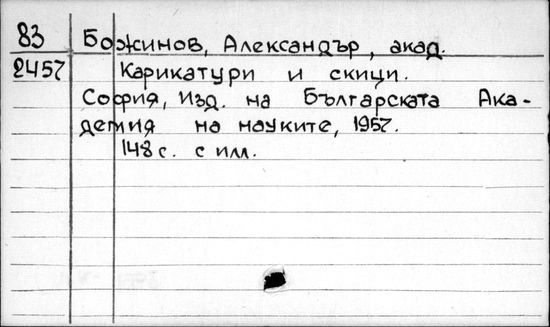 83 Божинов, Александър, акад.
2457 Карикатури и скици.
София, Изд. на Българската Ака-
демия на науките, 1957.
148 с. с илл.